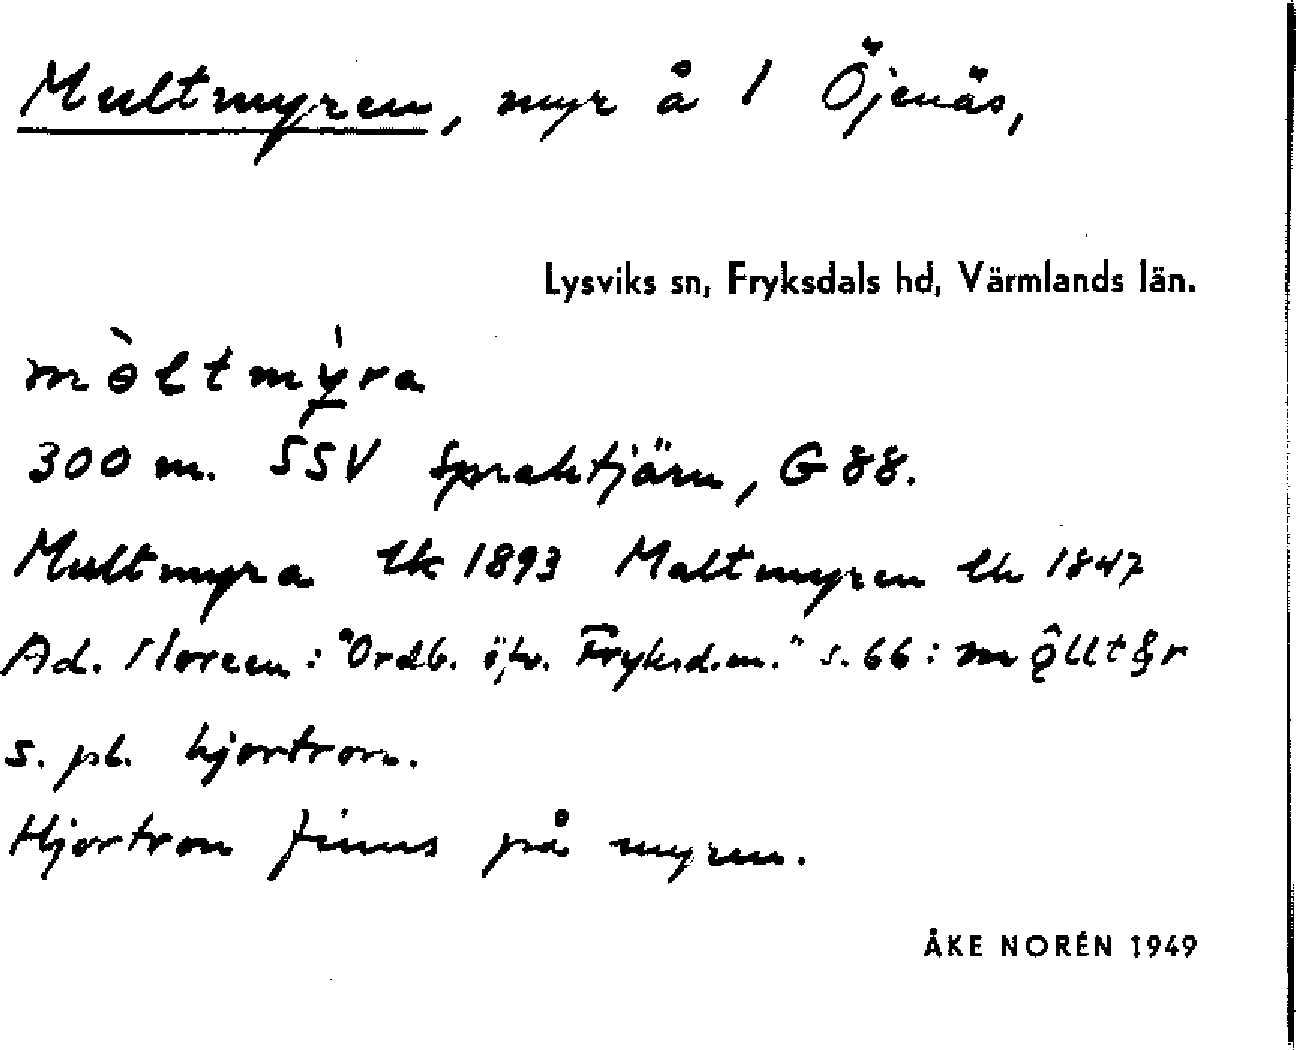 Multmyren, myr å 1 Öjenäs,
Lysviks sn, Fryksdals hd, Värmlands län.
mòltmy̠̍ra
300 m. SSV Spraktjärn, G 88.
Multmyra lk 1893 Maltmyren lk 1847
Ad. Noreen: "Ordb. öfv. Fryksd.m." s. 66:
s. pl. hjortron.
Hjortron finns på myren.
ÅKE NORÉN 1949